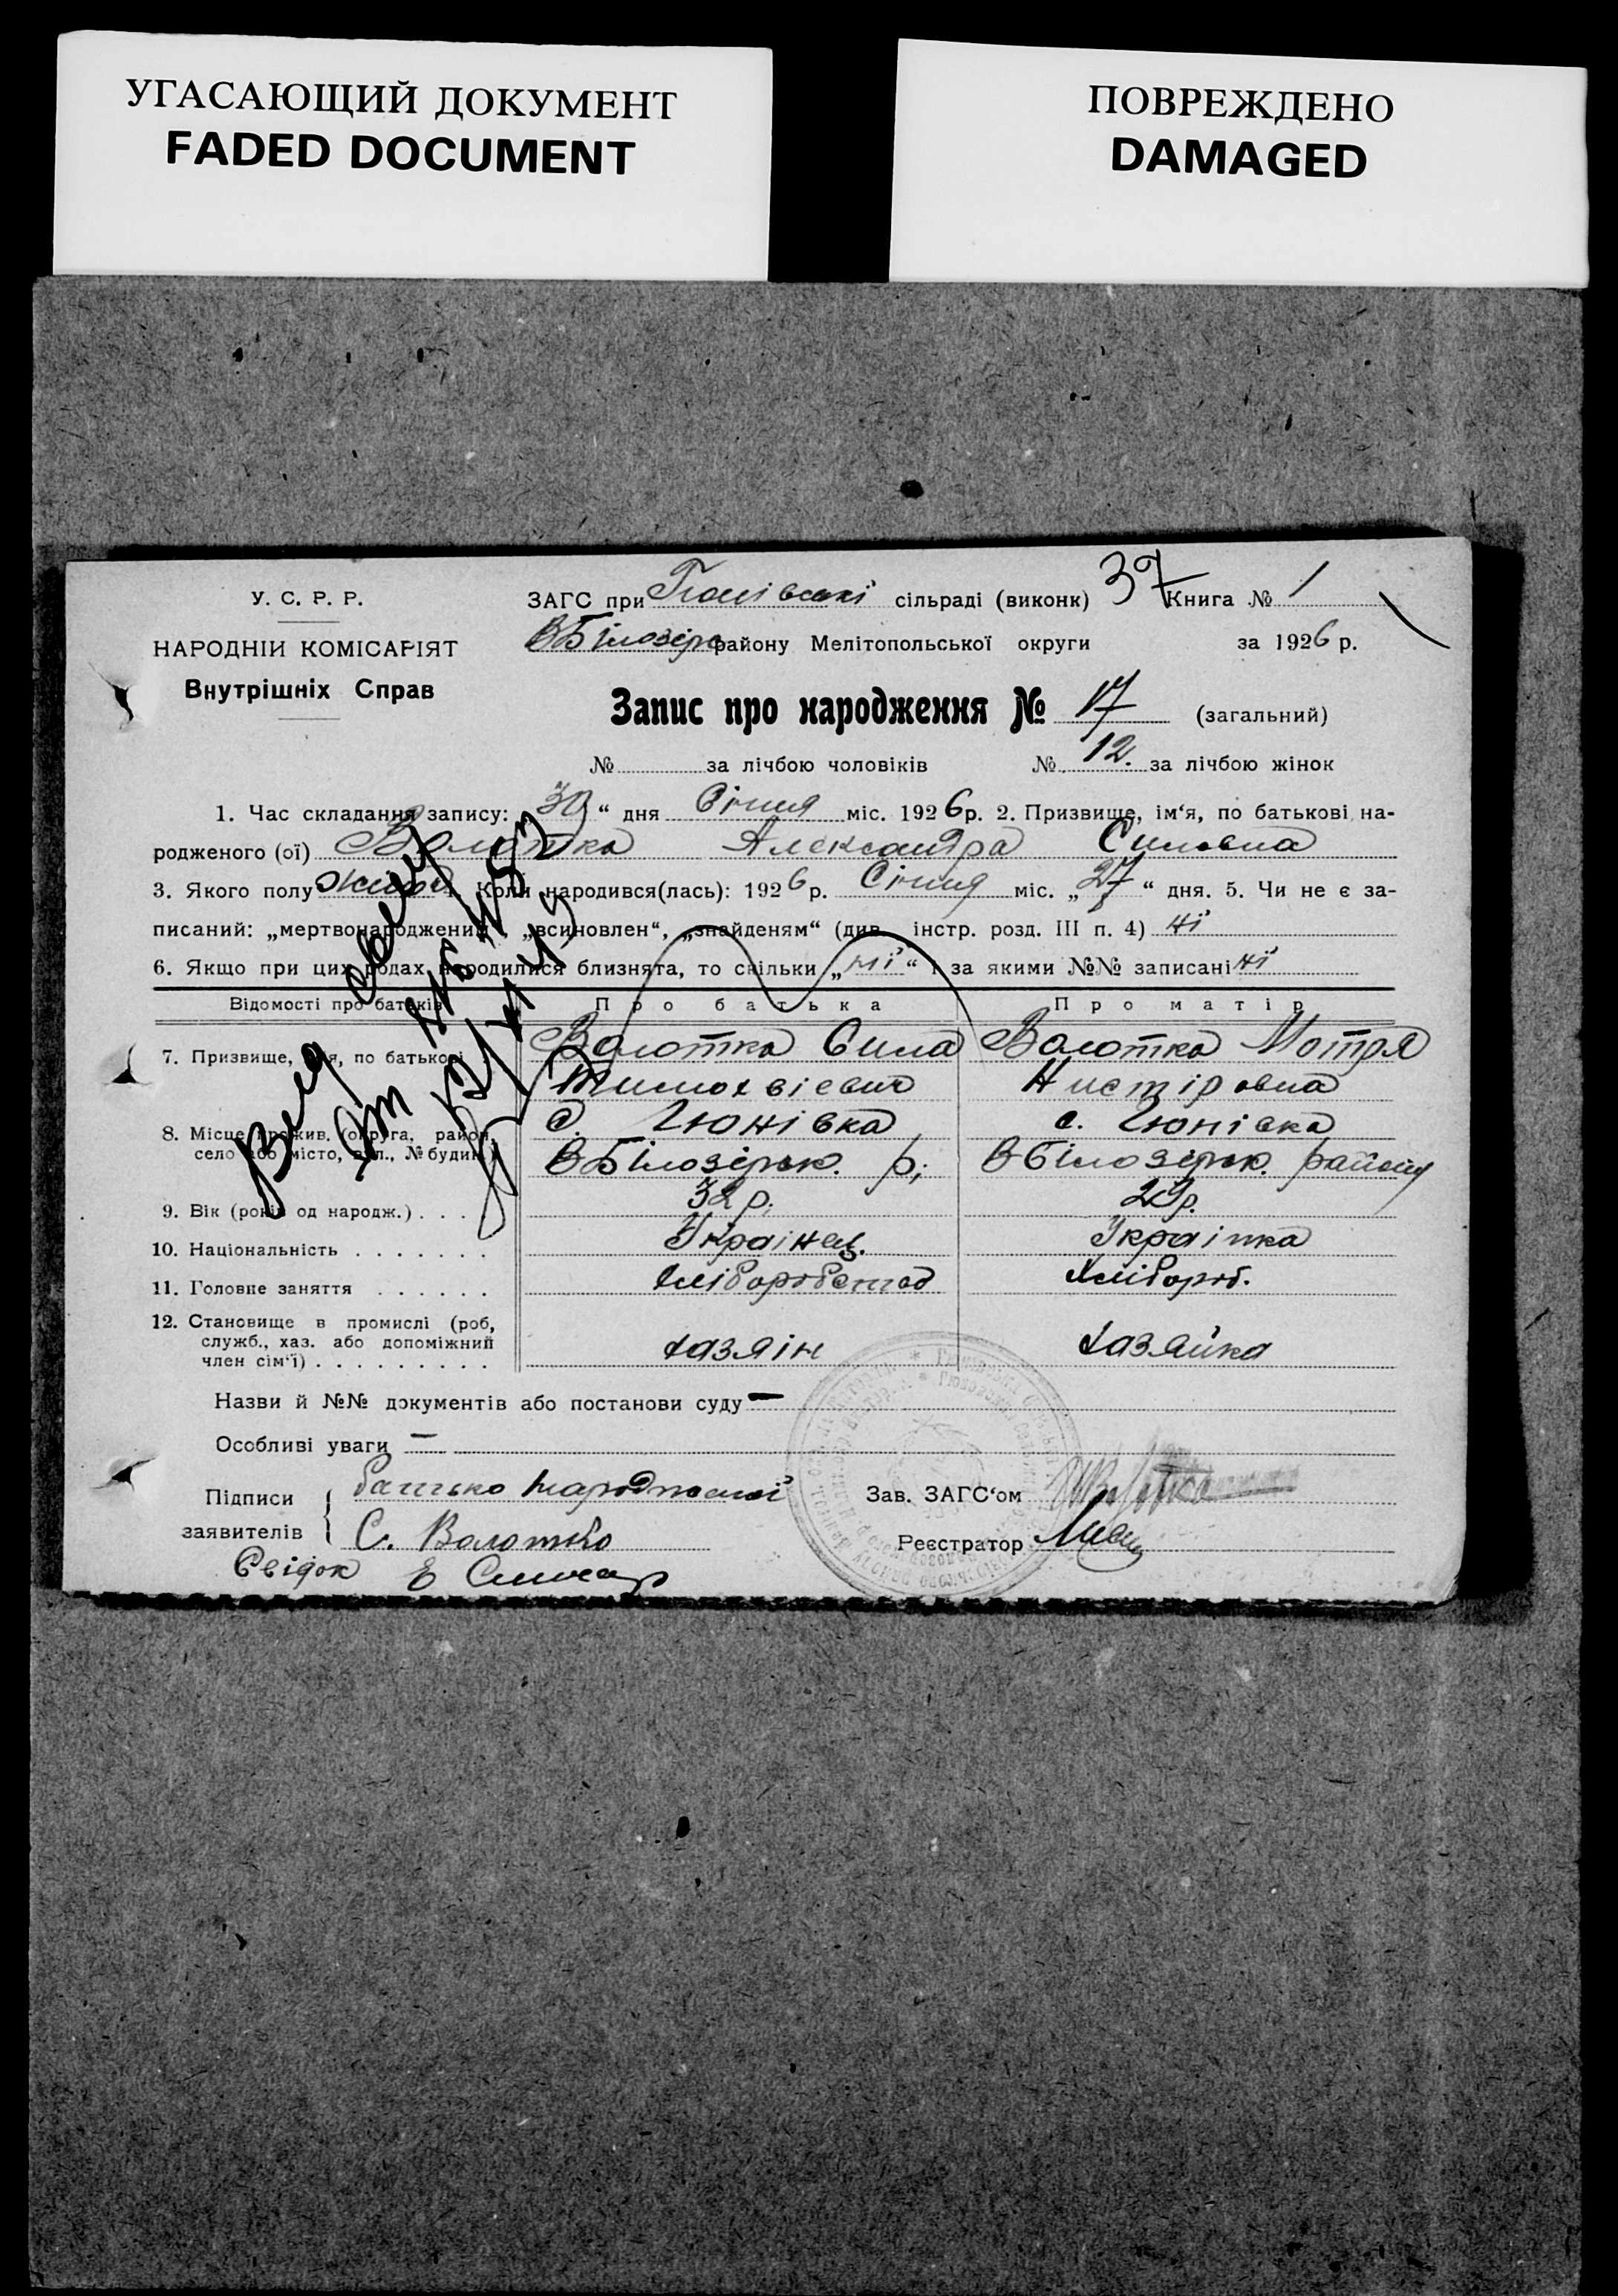 УГАСАЮЩИЙ ДОКУМЕНТ
FADED DOCUMENT
ПОВРЕЖДЕНО
DAMAGED
У. С. Р. Р.
НАРОДНІЙ КОМІСАРІЯТ
Внутрішніх Справ
ЗАГС при сільраді (виконк) 37 Книга № 1
ВБілозірс району Мелітопольської округи за 1926 р.
Запис про народження № 17 (загальний)
№ за лічбою чоловіків № 12. за лічбою жінок
1. Час складання запису: „30“ дня Січня міс. 1926 р. 2. Призвище, ім‘я, по батькові на-
родженого (ої) Волотка Александра Силовна
3. Якого полу 4. Коли народився(лась): 1926 р. Січня міс. „27“ дня. 5. Чи не є за-
писаний: „мертвонароджений“, „всиновлен“, „знайденям“ (див. інстр. розд. III п. 4) ні
6. Якщо при цих родах народилися близнята, то скільки „ні“ і за якими №№ записані ні
Відомості про батьків Про батька Про матір
7. Призвище, ім‘я, по батькові Волотка Сила Волотка Мотря
Тимохвієвич Нистіровна
8. Місце прожив. (округа, район, с. Гюнівка с. Гюнівка
село або місто, вул., № будин.) ВБілозірск. р; ВБілозірск. району
9. Вік (років од народж.) . . . 32 р. 29 р.
10. Національність . . . . . . . Українец. Українка
11. Головне заняття . . . . . . Хлібороб.
12. Становище в промислі (роб,
служб., хаз. або допоміжний хазяін хазяйка
член сім‘ї) . . . . . . . . .
Назви й №№ документів або постанови суду —
Особливі уваги —
Підписи батько Зав. ЗАГС‘ом
заявителів С. Волотко Реєстратор
Свідок Е